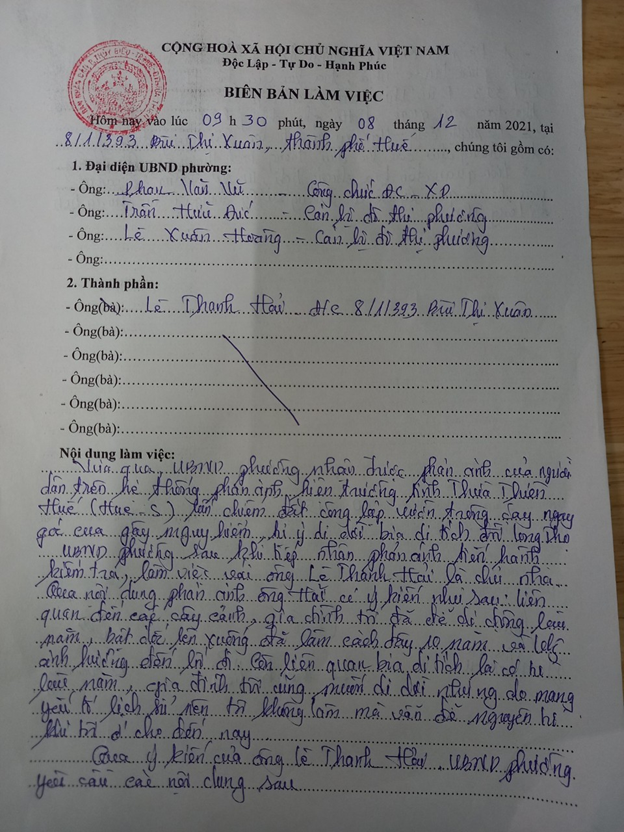 CỘNG HOÀ XÃ HỘI CHỦ NGHĨA VIỆT NAM
Độc Lập - Tự Do - Hạnh Phúc
BIÊN BẢN LÀM VIỆC
Hôm nay vào lúc 09 h 30 phút, ngày 08 tháng 12 năm 2021, tại
8/1/393 Bùi Thị Xuân, thành phố Huế, chúng tôi gồm có:
1. Đại diện UBND phường:
- Ông: Phan Văn - Công chức ĐC - XD
- Ông: Trần Hữu Đức - Cán bộ đô thị phường
- Ông: Lê Xuân Hoàng - Cán bộ đô thị phường
- Ông:
2. Thành phần:
- Ông(bà): Lê Thanh Hải Đ/c 8/1/393 Bùi Thị Xuân
- Ông(bà):
- Ông(bà):
- Ông(bà):
- Ông(bà):
- Ông(bà):
Nội dung làm việc:
Vừa qua, UBND phường nhận được phản ánh của người
dân trên hệ thống phản ánh hiện trường tỉnh Thừa Thiên
Huế (Hue_S) lấn chiếm đất công lập vườn trồng cây ngay
cua gây nguy hiểm, di dời bia di tích Long Thọ
UBND phường sau khi tiếp nhận phản ánh tiến hành
kiểm tra, làm việc với ông Lê Thanh Hải là chủ nhà
Qua nội dung phản ánh ông Hải có ý kiến như sau: liên
quan đến các cây cảnh, gia đình tôi đã để di chồng lâu
năm, bắt dốc lên xuống đã làm cách đây 10 năm và
ảnh hưởng đến đi. Còn liên quan bia di tích là có từ
lâu năm, gia đình tôi cũng muốn di dời nhưng do mang
yếu tố lịch sử nên tôi không làm mà vẫn để nguyên
cho đến nay
Qua ý kiến của ông Lê Thanh Hải, UBND phường
yêu cầu các nội dung sau